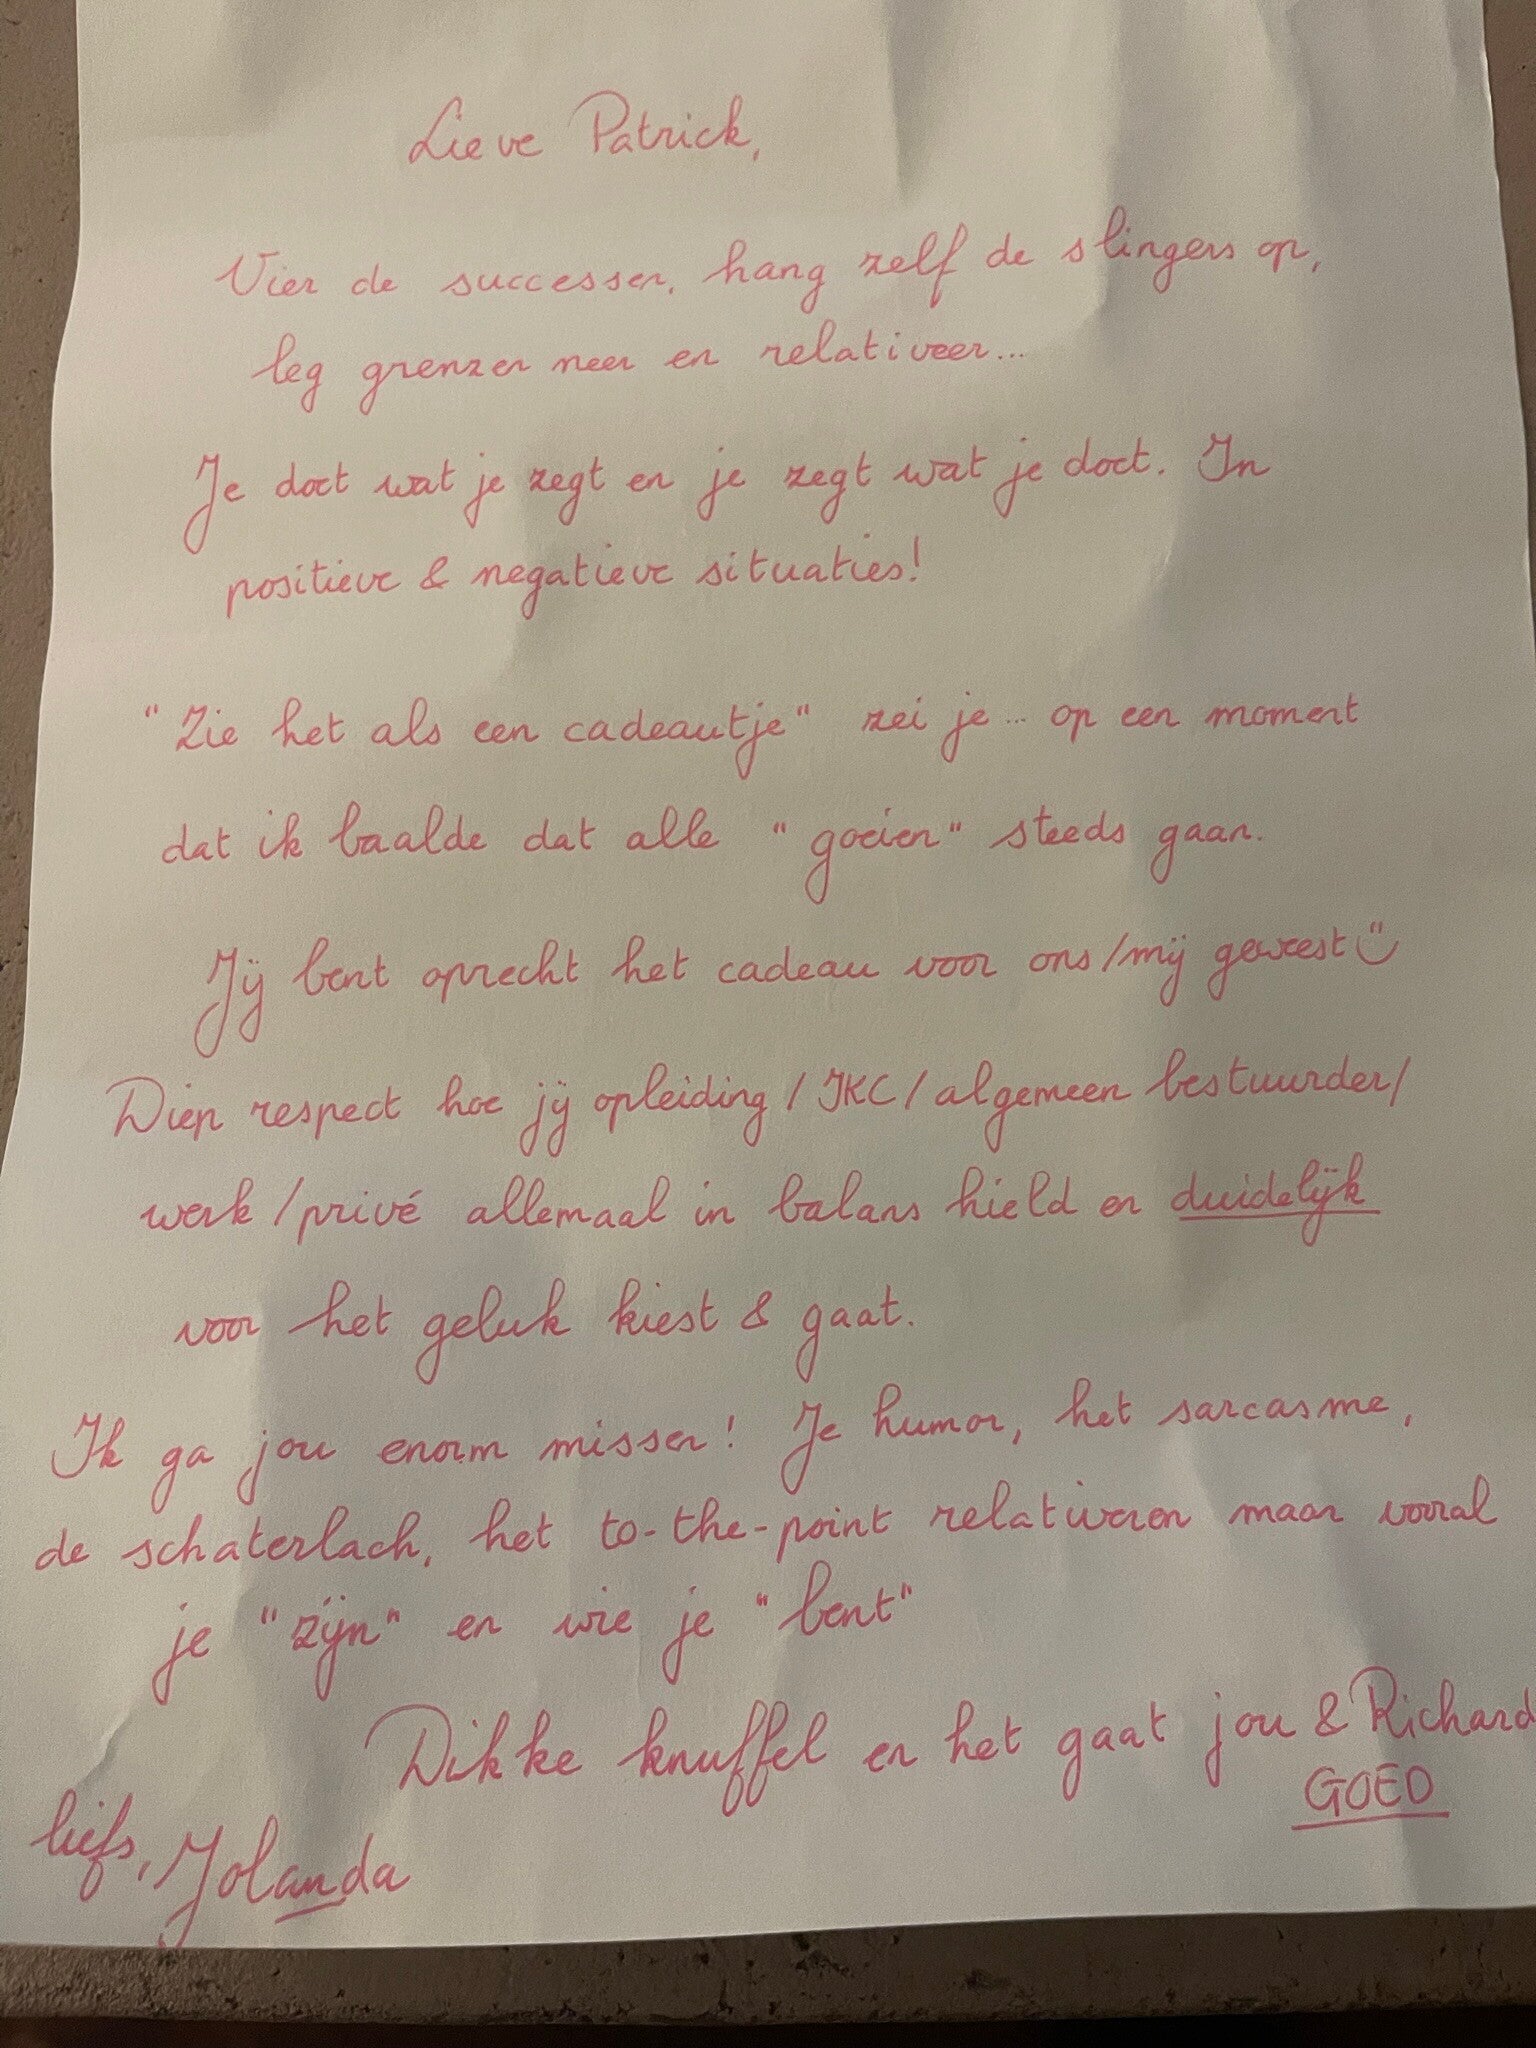 Lieve Patrick,
Vier de successen, hang zelf de slingers op,
leg grenzen neer en relativeer...
Je doet wat je zegt en je zegt wat je doet. In
positieve & negatieve situaties!
"Zie het als een cadeautje" zei je... op een moment
dat ik baalde dat alle "goeien" steeds gaan.
Jij bent oprecht het cadeau voor ons/mij geweest ☺
Diep respect hoe jij opleiding / IKC / algemeen bestuurder/
werk / privé allemaal in balans hield en duidelijk
voor het geluk kiest & gaat.
Ik ga jou enorm missen! Je humor, het sarcasme,
de schaterlach, het to-the-point relativeren maar vooral
je "zijn" en wie je "bent"
Dikke knuffel en het gaat jou & Richard
GOED
liefs, Jolanda